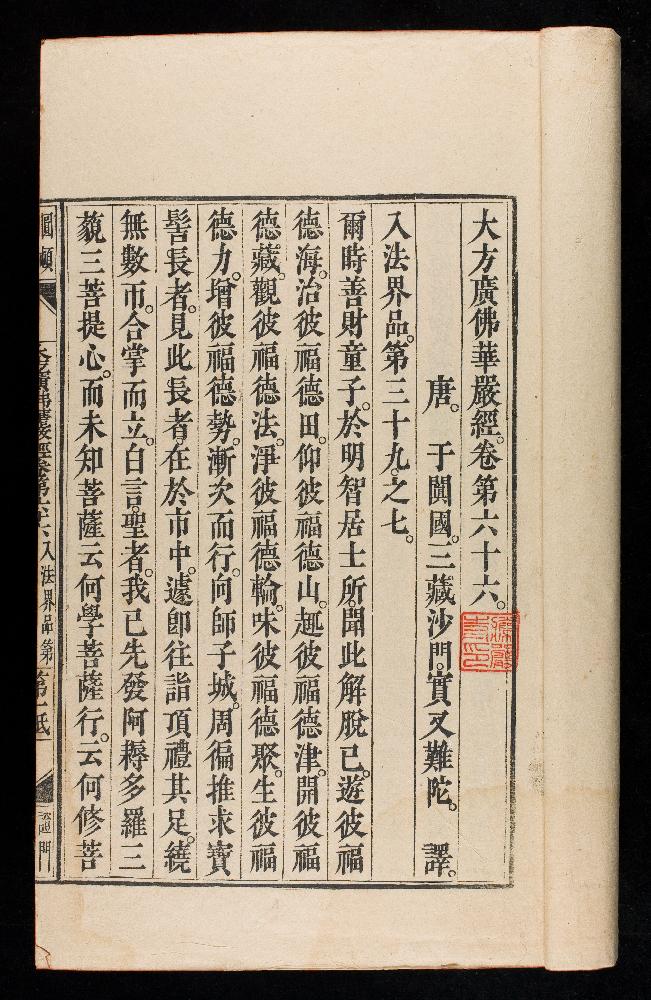 大方廣佛華嚴經。卷第六十六。
唐。于闐國。三藏沙門。實叉難陀。譯。
入法界品。第三十九。之七。
爾時善財童子。於明智居士所。聞此解脫已。遊彼福
德海。治彼福德田。仰彼福德山。趣彼福德津。開彼福
德藏。觀彼福德法。淨彼福德輪。味彼福德聚。生彼福
德力。增彼福德勢。漸次而行。向師子城。周徧推求寶
髻長者。見此長者。在於市中。遽卽往詣。頂禮其足。繞
無數帀。合掌而立。白言。聖者。我已先發阿耨多羅三
藐三菩提心。而未知菩薩云何學菩薩行。云何修菩
大方廣佛華嚴經卷第六十六 入法界品第 第一紙